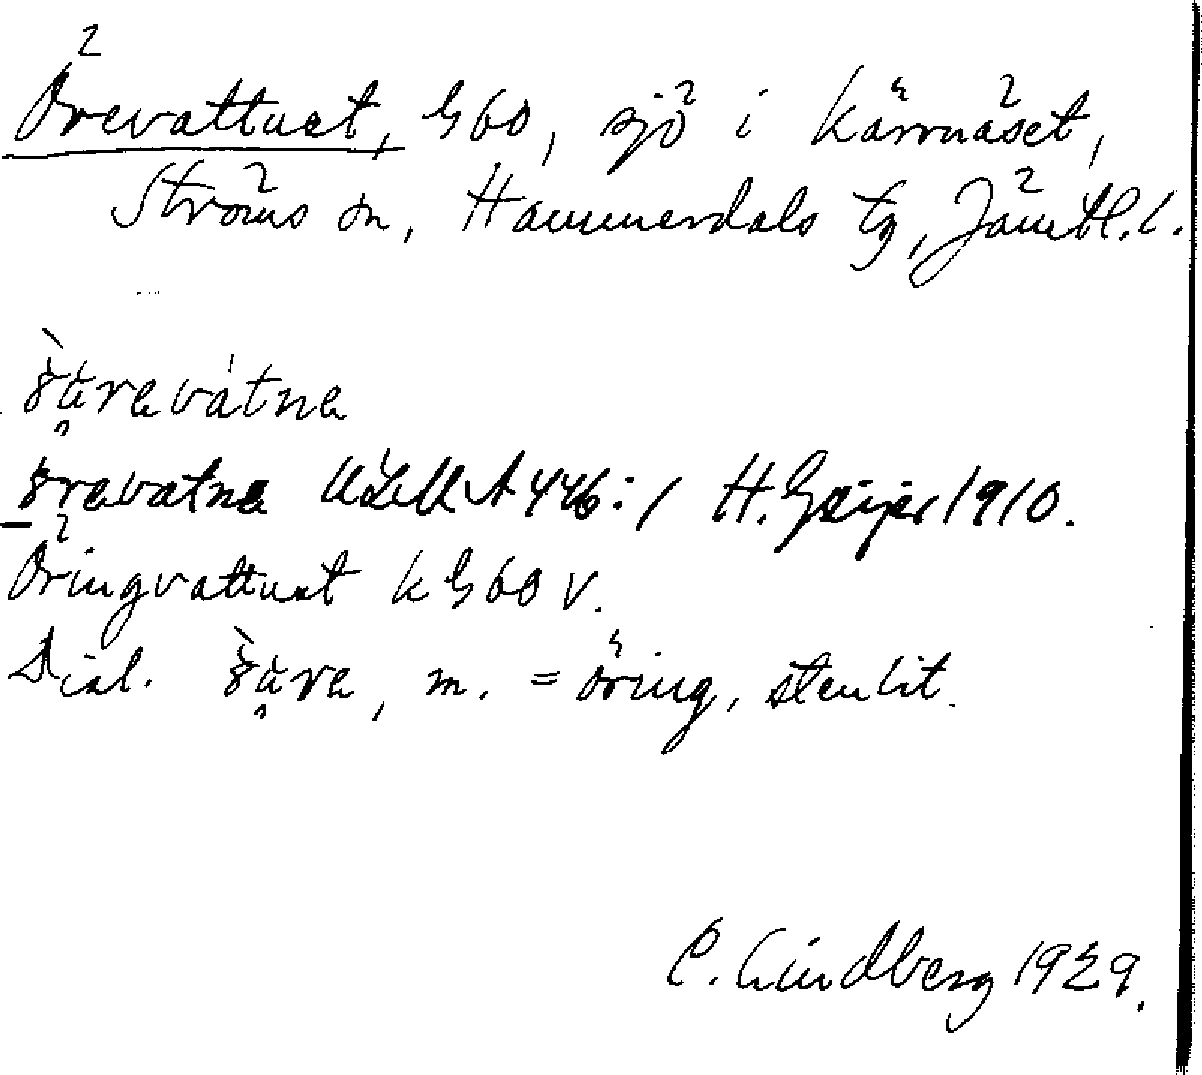 Örevattnet, G60, sjö i Kärrnäset,
Ströms sn, Hammerdals tg, Jämtl. l.
ɤ̀ärevátne
ɤrevatne ULMA 446:1 H. Geijer 1910.
Öringvattnet k G60 V.
Dial. ɤ̀äre, m. = öring, stenbit.
C. Lindberg 1929.